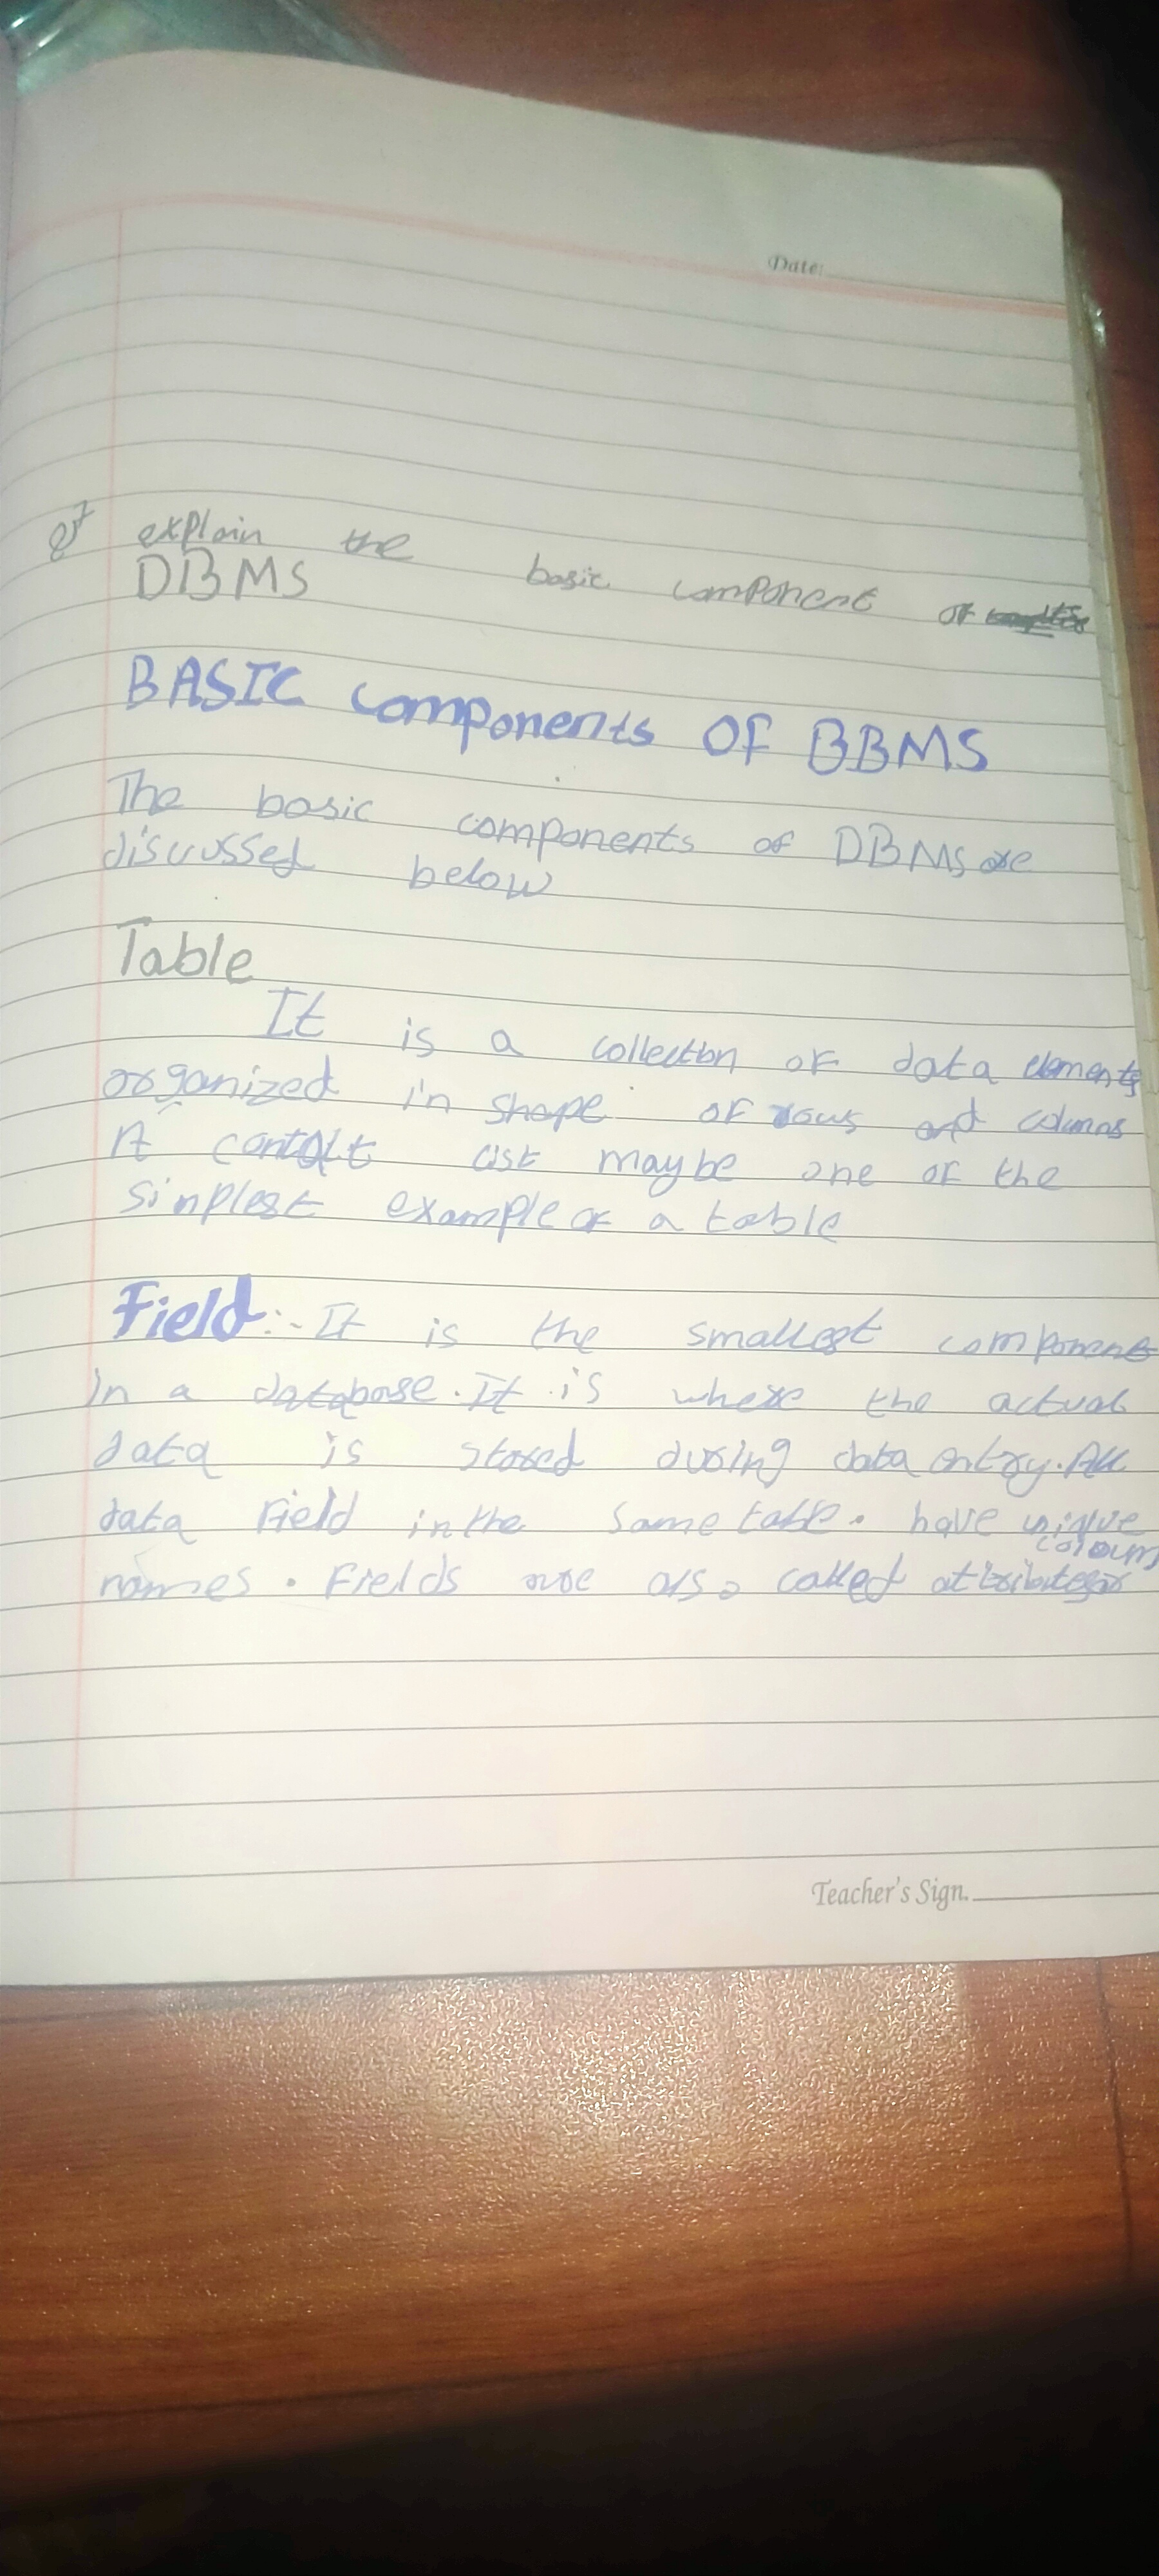 Date:
Q7 explain the basic component of
DBMS
BASIC components OF BBMS
The basic components of DBMS are
discussed below
Table
It is a collection of data elements
organized in shape of rows and columns
A contact list may be one of the
simplest example of a table
Field:- It is the smallest component
in a database. It is where the actual
data is stored during data entry. All
data Field in the same table. have unique
names. Fields are also called attributes or
coloum
Teacher's Sign.